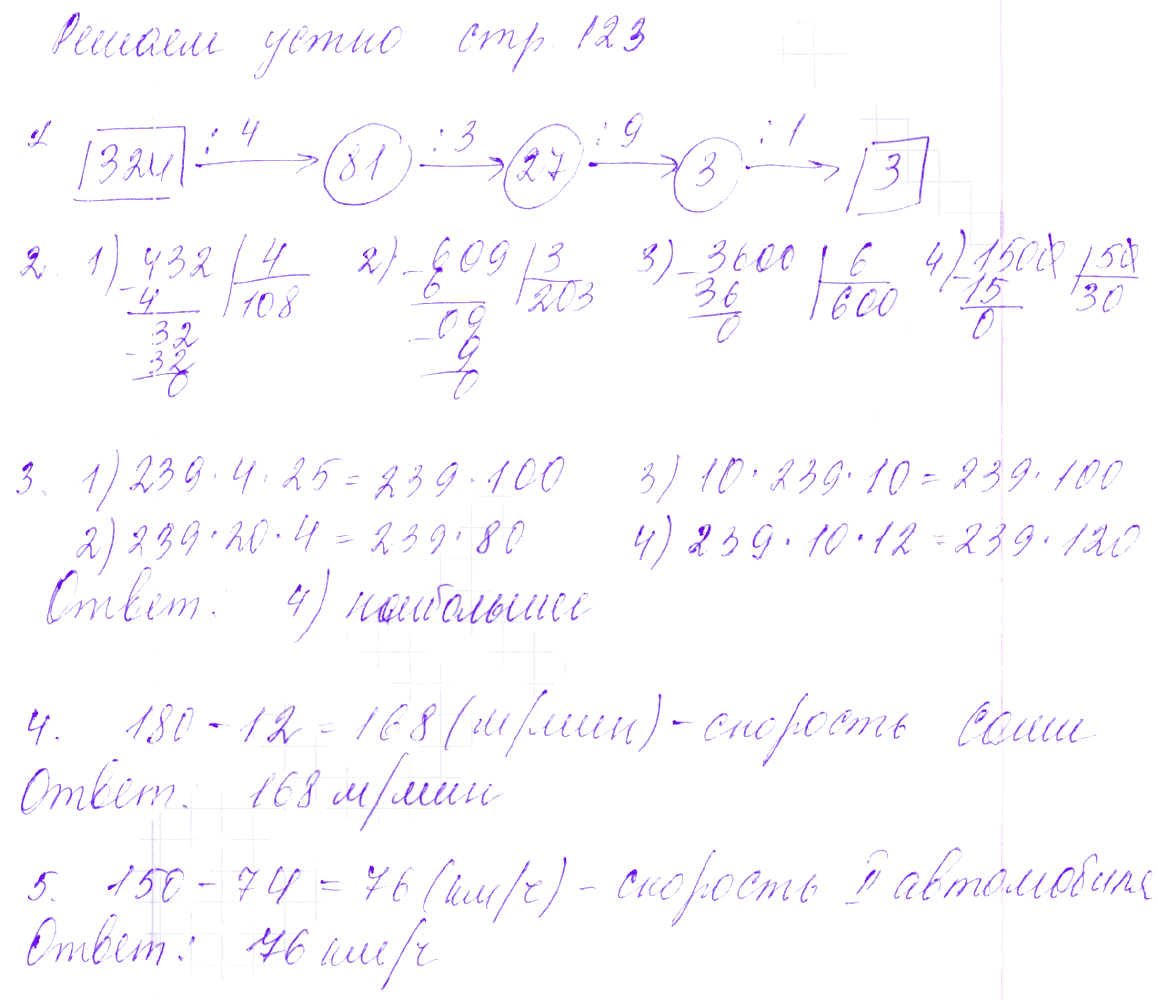 Решаем устно стр. 123
1 324 :4 81 :3 27 :9 3 :1 3
2. 1) 432 | 4 2) 609 | 3 3) 3600 | 6 4) 1500 | 50
4 108 6 203 36 600 15 30
32 09 0 0
32 9
0 0
3. 1) 239 · 4 · 25 = 239 · 100 3) 10 · 239 · 10 = 239 · 100
2) 239 · 20 · 4 = 239 · 80 4) 239 · 10 · 12 = 239 · 120
Ответ: 4) наибольшее
4. 180 - 12 = 168 (м/мин) - скорость Саши
Ответ. 168 м/мин
5. 150 - 74 = 76 (км/ч) - скорость II автомобиля
Ответ: 76 км/ч